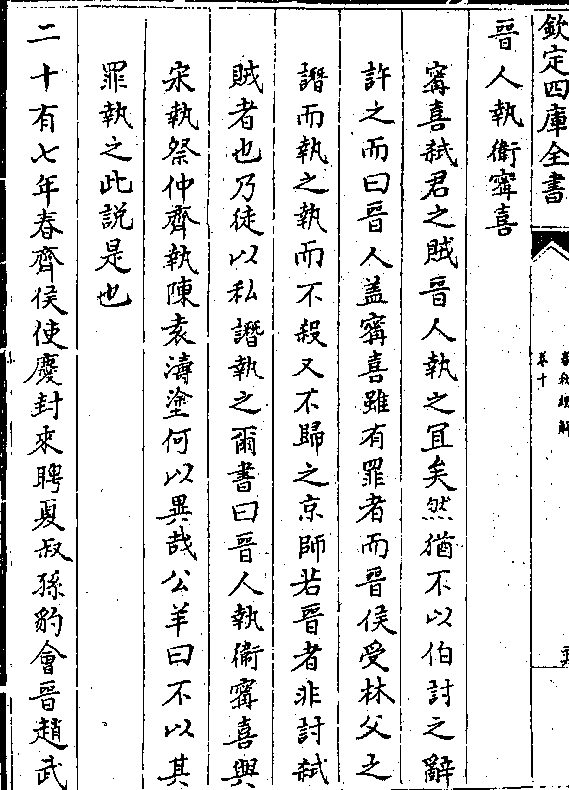 欽定四庫全書
春秋經解
卷十
晉人執衛甯喜
甯喜弑君之賊晉人執之宜矣然猶不以伯討之辭
許之而曰晉人盖甯喜雖有罪者而晉侯受林父之
譖而執之執而不殺又不歸之京師若晉者非討弑
賊者也乃徒以私譖執之爾書曰晉人執衛甯喜與
宋執祭仲齊執陳袁濤塗何以異哉公羊曰不以其
罪執之此説是也
二十有七年春齊侯使慶封來聘夏叔孫豹會晉趙武